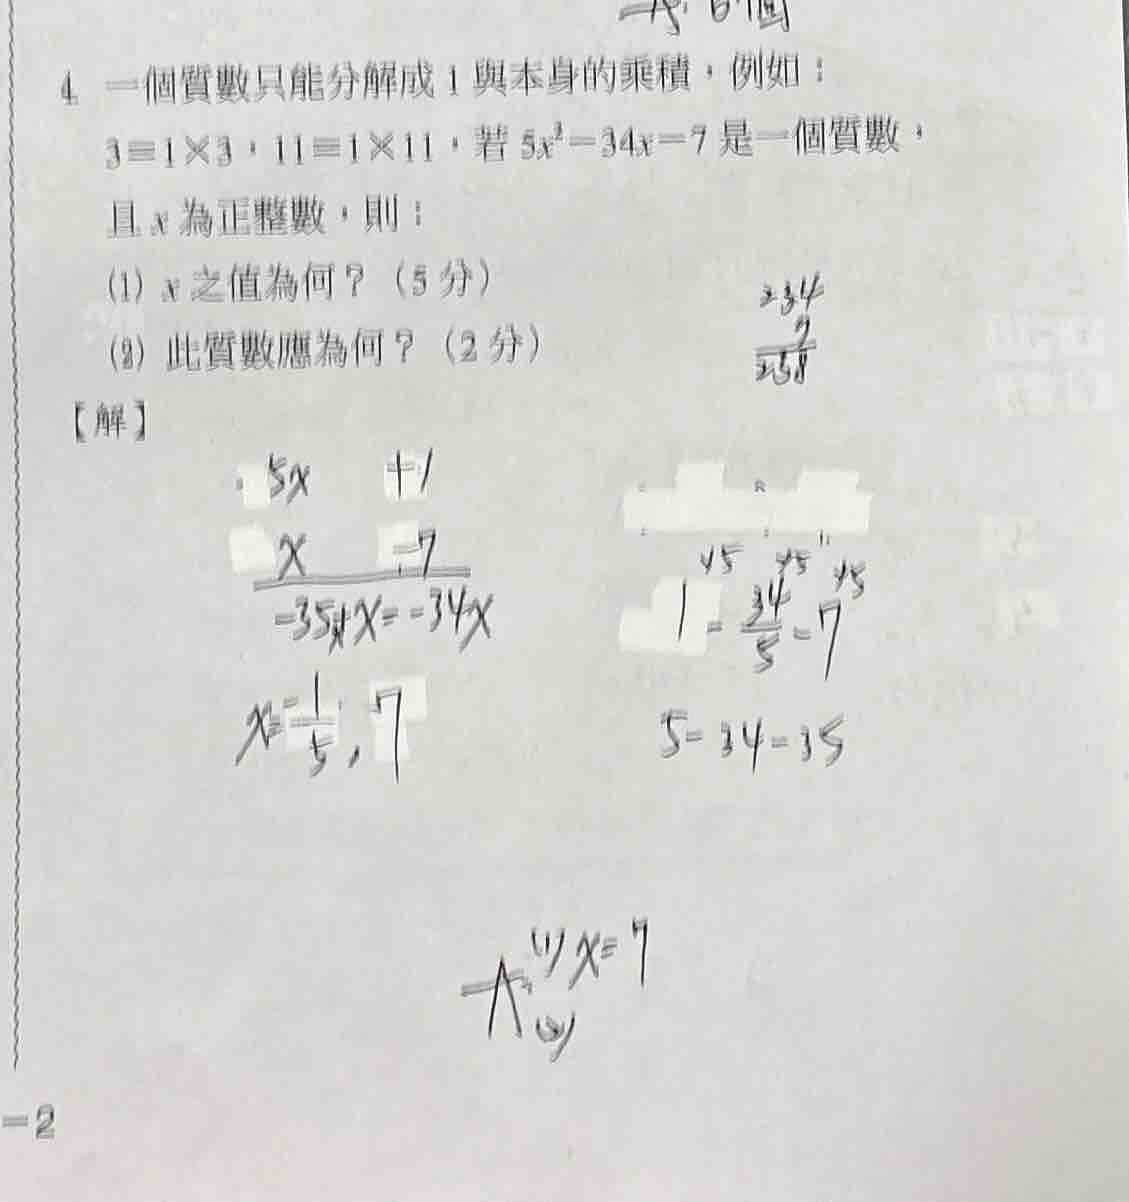 4 一個質數只能分解成 1 與本身的乘積,例如:
3=1×3,11=1×11,若 5x²-34x-7 是一個質數,
且 x 為正整數,則:
(1) x 之值為何?(5 分)
(2) 此質數應為何?(2 分)
234
7
238
【解】
5x +1
x -7
-35x+x=-34x
x=-1/5, 7
x5 x5 x5
1-34/5-7
5-34-35
A: (1) x=7
(2)
-2